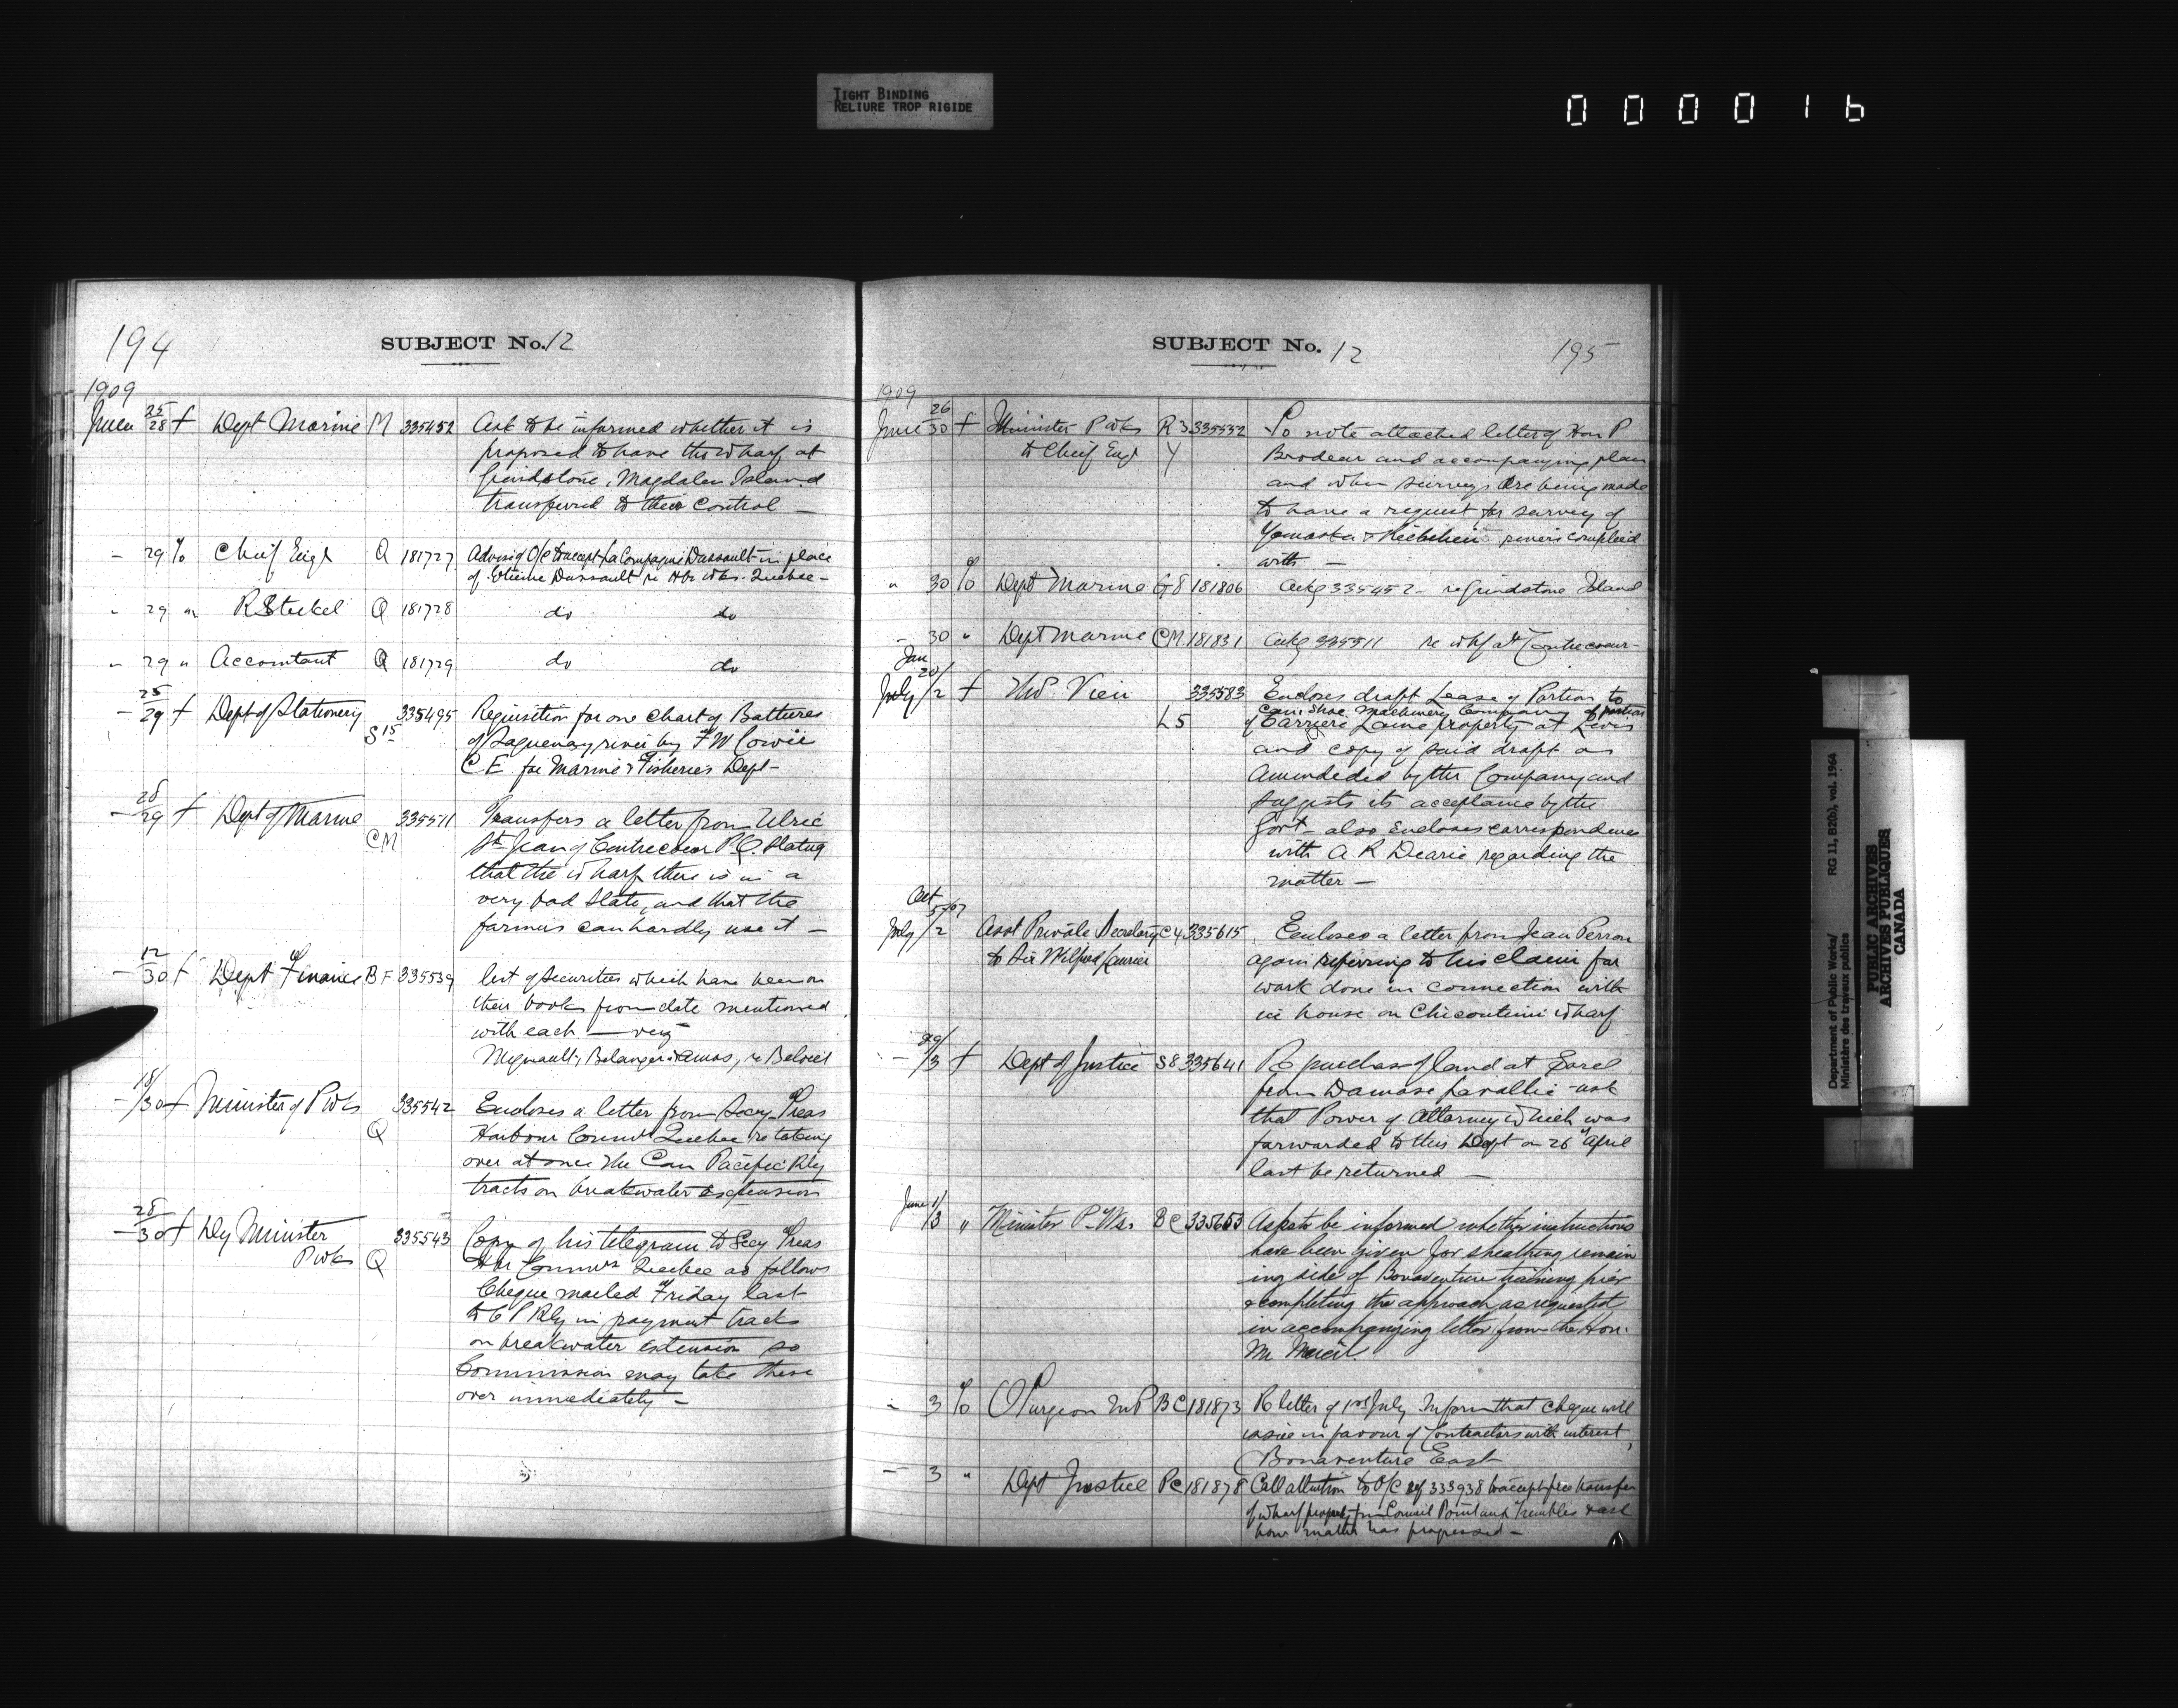 TIGHT BINDING
RELIURE TROP RIGIDE
000016
194
SUBJECT No. 12
1909
June 25/28 f Dept Marine M 335452 Ask to be informed whether it is
proposed to have the wharf at
Grindstone, Magdalen Island
transferred to their control —
" 29 % Chief Engr Q 181727 Advising O/C to accept La Compagnie Dussault in place
of Etienne Dussault re Hbr Wks. Quebec —
" 29 " R Steckel Q 181728 do do
" 29 " Accountant Q 181729 do do
— 25/29 f Dept of Stationery S15 335495 Requisition for one chart of Battures
of Saguenay river by F W Cowie
C E for Marine & Fisheries Dept —
— 28/29 f Dept of Marine CM 335511 Transfers a letter from Ulric
St Jean of Contrecoeur P.Q. stating
that the wharf there is in a
very bad state, and that the
farmers can hardly use it —
— 12/30 f Dept of Finance B F 335539 list of securities which have been on
their books from date mentioned
with each — viz
Migneault, Belanger & Amos, re Beloeil
— 18/30 f Minister of P Wks Q 335542 Encloses a letter from Secy Treas
Harbour Commrs Quebec re taking
over at once the Can Pacific Rly
tracks on breakwater extension
— 28/30 f Dy Minister
P Wks Q 335543 Copy of his telegram to Secy Treas
Hbr Commrs Quebec as follows
Cheque mailed Friday last
to C P Rly in payment tracks
on breakwater extension so
Commission may take these
over immediately —
SUBJECT No. 12
195
1909
June 26/30 f Minister P Wks R 3 335552 To note attached letter of Hon P
to Chief Engr Y Brodeur and accompanying plan
and when surveys are being made
to have a request for survey of
Yamaska & Richelieu rivers complied
with —
" 30 % Dept Marine G8 181806 Ackg 335452 — re Grindstone Island
" 30 " Dept Marine CM 181831 Ackg 335511 re whf at Contrecoeur —
Jan 20/
July 2 f Thos. Vien L5 335583 Encloses draft Lease of Portion to
Can. Shoe Machinery Company of portion
of Carriere Laine property at Levis
and copy of said draft as
amended by the Company and
suggests its acceptance by the
Govt — also Encloses correspondence
with A R Dearie regarding the
matter —
Oct 5/07
July /2 Asst Private Secretary C4 335615 Encloses a letter from Jean Perron
to Sir Wilfred Laurier again referring to his claim for
work done in connection with
ice house on Chicoutimi wharf
— 29/3 f Dept of Justice S8 335641 Re purchase of land at Sorel
from Damase Lavallie - ask
that Power of Attorney which was
forwarded to this Dept on 26th April
last be returned —
June 1/3 " Minister P. Wks. BC 335653 Asks to be informed whether instructions
have been given for sheathing remain
ing side of Bonaventure training pier
& completing the approach as requested
in accompanying letter from the Hon.
Mr Marcil.
— 3 % O Turgeon M P BC 181873 Re letter of 1st July. Inform that cheque will
issue in favour of Contractors with interest,
Bonaventure East
— 3 " Dept Justice PC 181878 Call attention to O/C ref 333938 to accept free transfer
of wharf property from Council Pointe aux Trembles & ask
how matter has progressed —
Department of Public Works/
Ministère des travaux publics
RG 11, B2(b), vol. 1964
PUBLIC ARCHIVES
ARCHIVES PUBLIQUES
CANADA